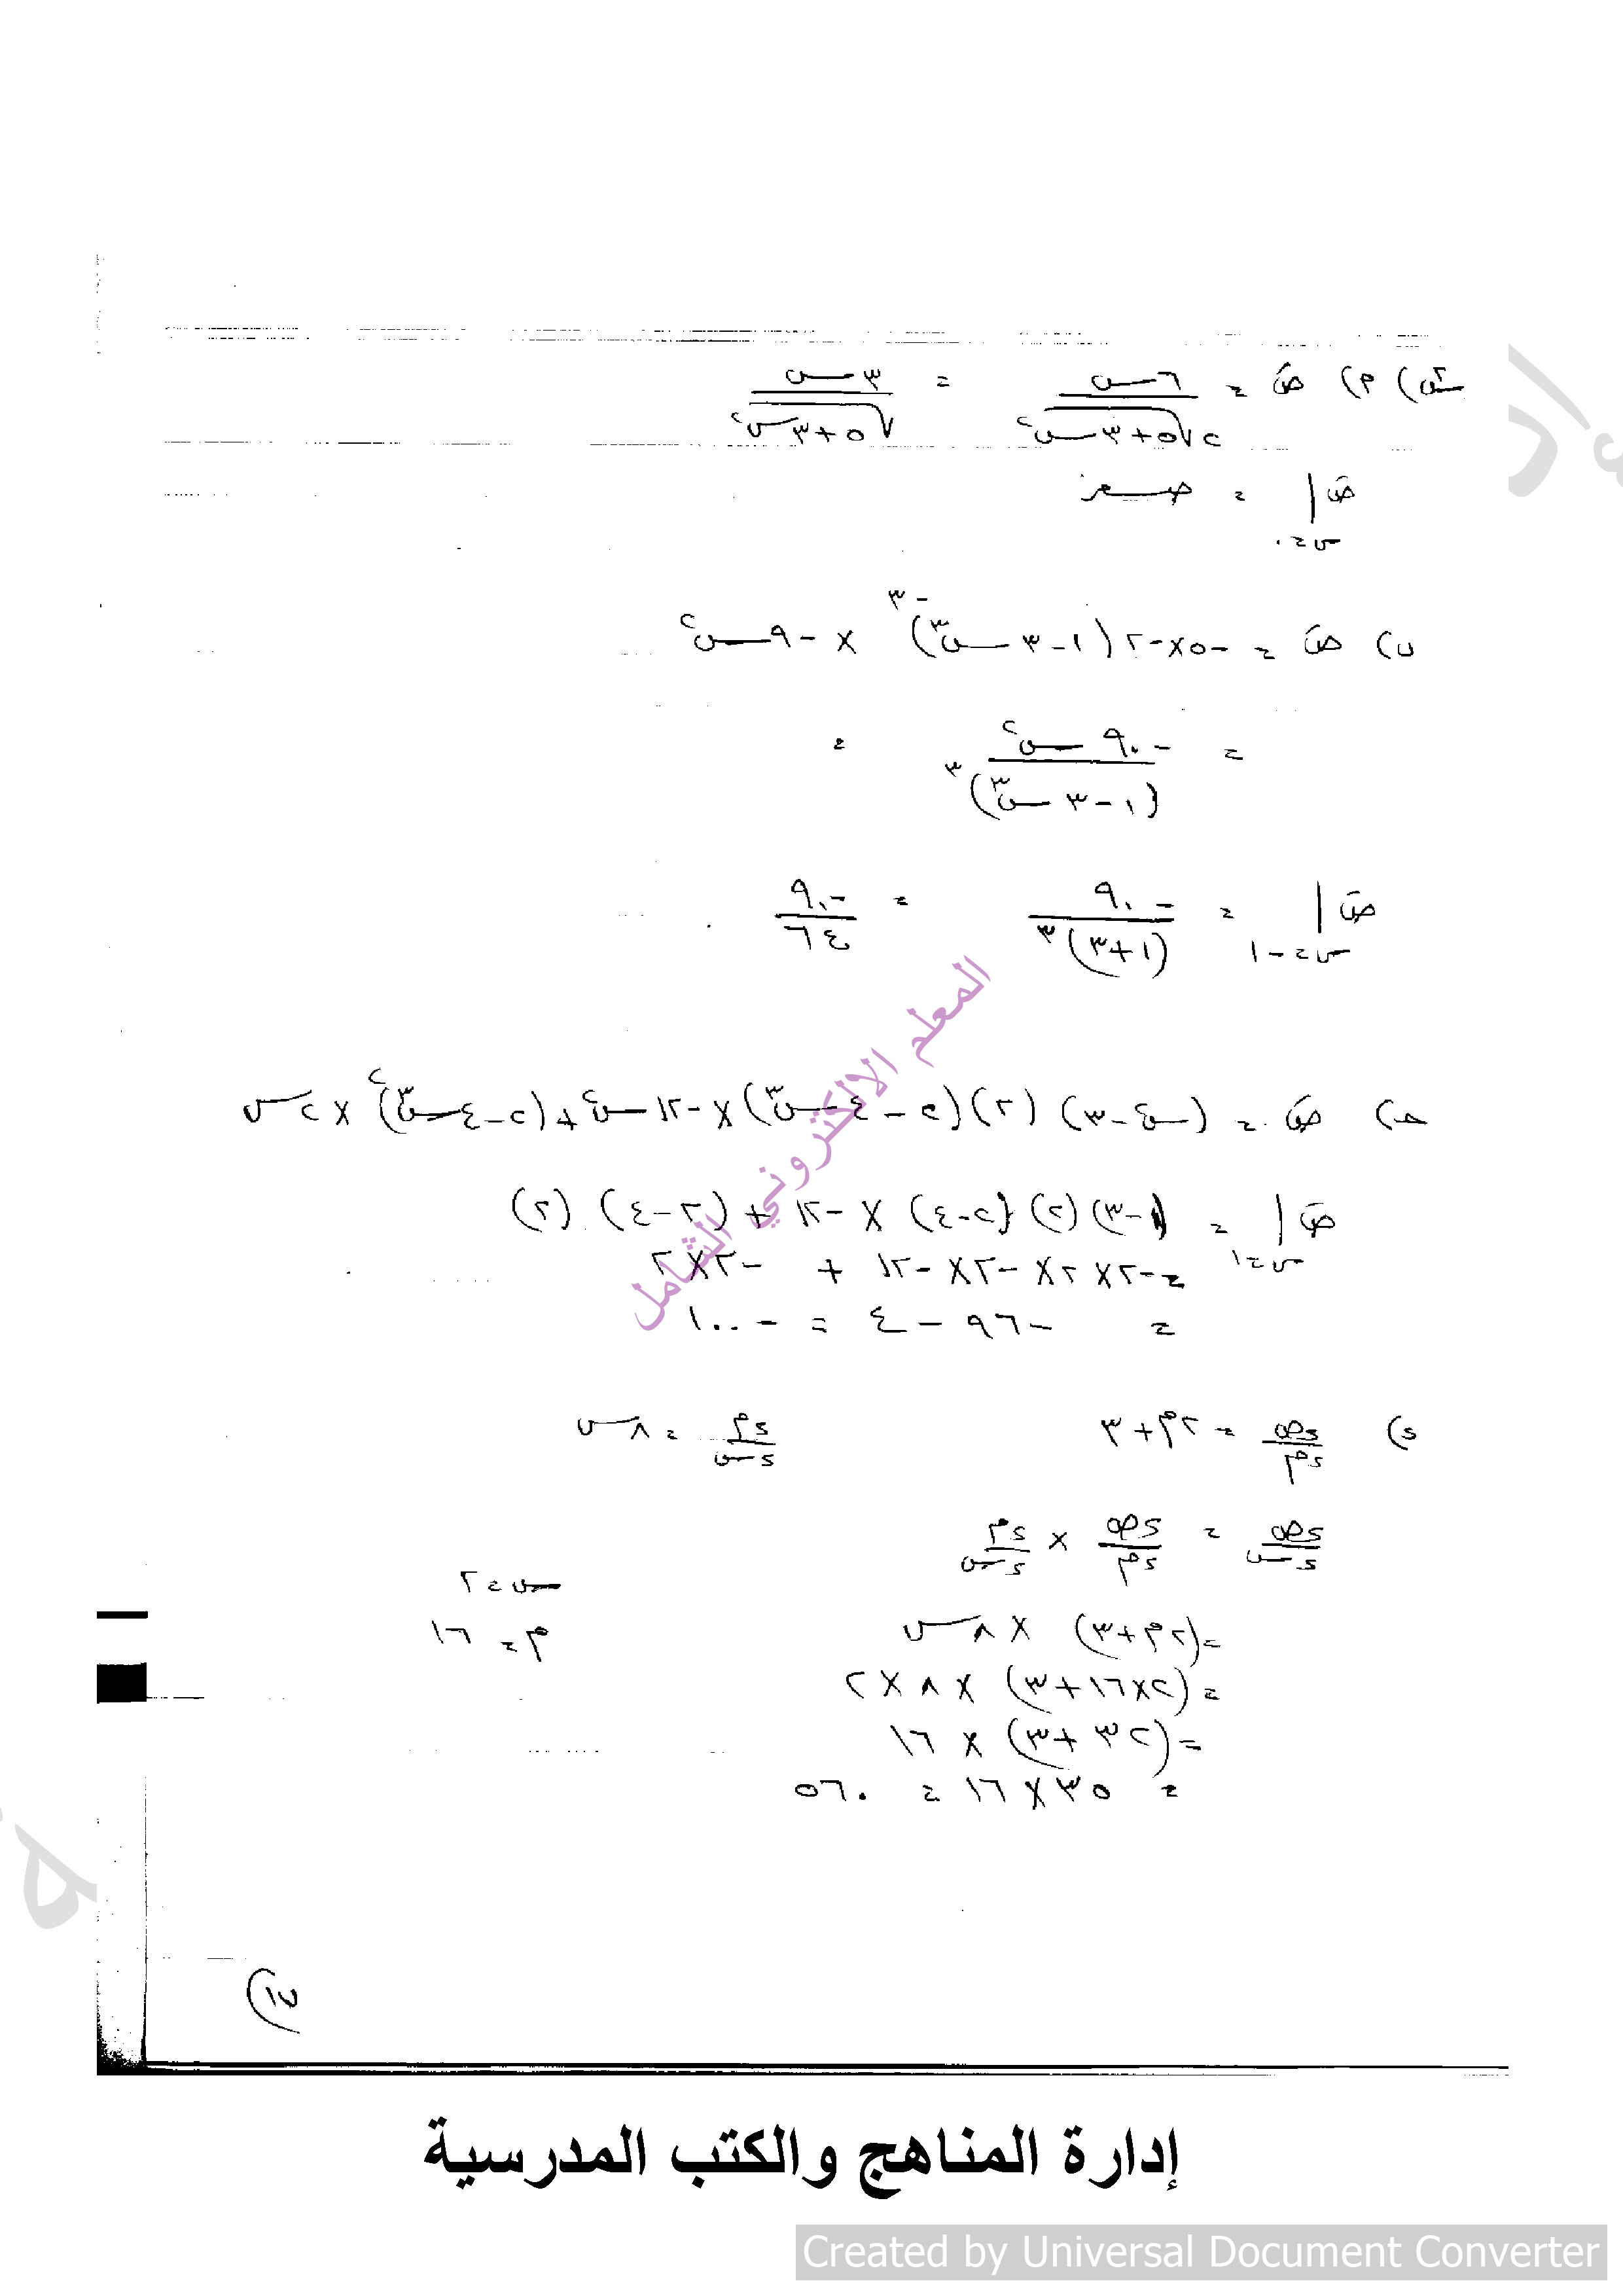 س٢) م) صَ = ٦س / ٢√(٥+٣س٢) = ٣س / √(٥+٣س٢)
صَ | س=٠ = صفر
ب) صَ = -٥×-٢(١-٣س٣)-٣ × -٩س٢
= -٩٠س٢ / (١-٣س٣)٣ =
صَ | س=-١ = -٩٠ / (١+٣)٣ = -٩٠ / ٦٤
حـ) صَ = (س٢-٣)(٢)(٢-٤س٣)×-١٢س٢+(٢-٤س٣)٢×٢س
صَ | س=١ = (١-٣)(٢)(٢-٤)×-١٢+(٢-٤)(٢)
=-٢×٢×-٢×-١٢ + -٢×٢
= -٩٦-٤ = -١٠٠
د) دص/دم = ٢م+٣ دم/دس = ٨س
دص/دس = دص/دم × دم/دس
=(٢م+٣)×٨س س=٢
=(٢×١٦+٣)×٨×٢ م=١٦
=(٣٢+٣)×١٦
= ٣٥×١٦ = ٥٦٠
المعلم الالكتروني الشامل
إدارة المناهج والكتب المدرسية
Created by Universal Document Converter